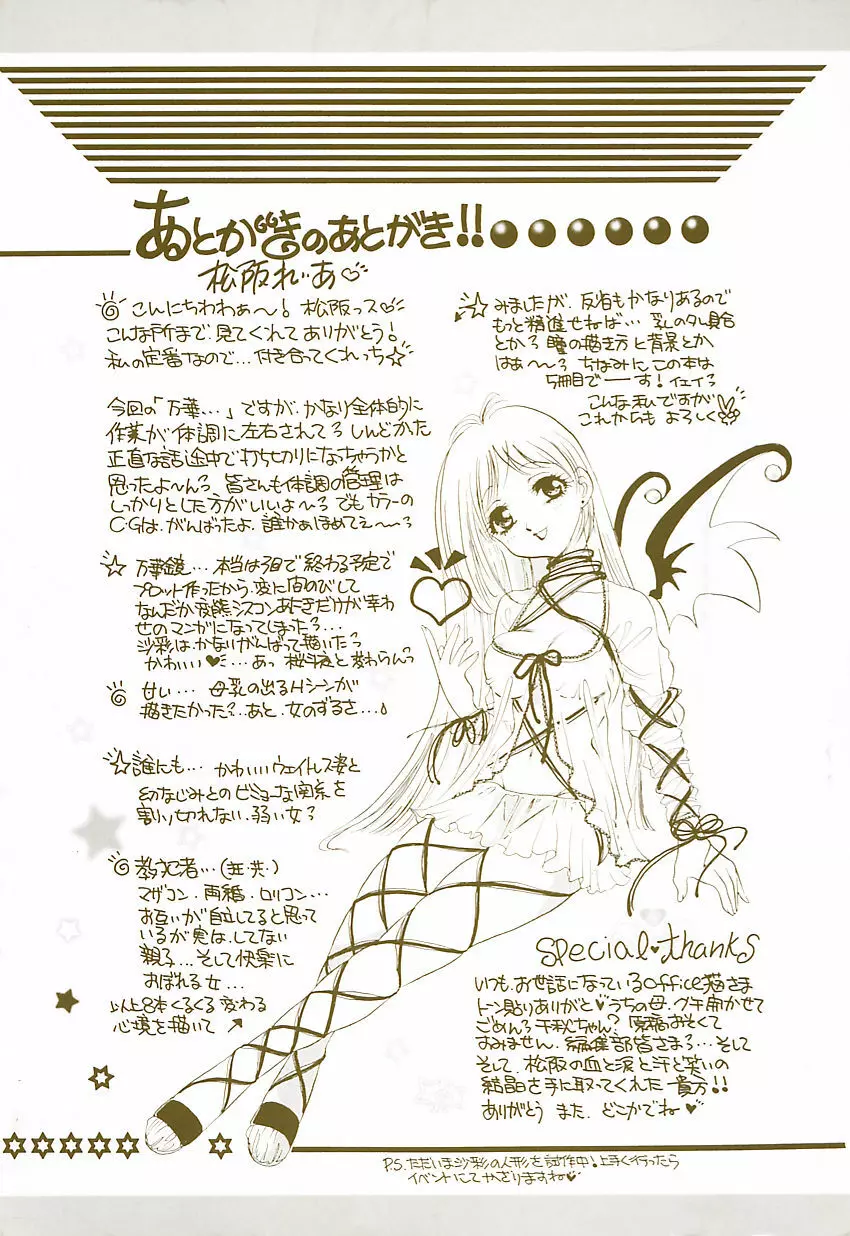 あとがきのあとがき!!
松阪れぃあ♡
こんにちわわぁ〜! 松阪っス♡
こんな所まで、見てくれてありがとう!
私の定番なので…付き合ってくれっち☆
今回の「万華…」ですが、かなり全体的に
作業が体調に左右されてる しんどかた
正直な話途中で打ち切りになっちゃうかと
思ったよ〜ん 皆さんも体調の管理は
しっかりとした方がいいよ〜 でもカラーの
CGは、がんばったよ、誰かぁほめてぇ〜
☆ 万華鏡…本当は3回で終わる予定で
プロット作ったから、変に間のびして
なんだか変態シスコンあにきだけが幸わ
せのマンガになってしまった…
沙彩は、かなりがんばって描いた
かわいい♥…あっ 桜斗夜と変わらんっ
甘い… 母乳の出るHシーンが
描きたかった?…あと、女のずるさ…
☆誰にも… かわいいウェイトレス姿と
幼なじみとのビミョーな関系を
割り切れない、弱い女
教犯者…(共)
マザコン・再婚・ロリコン…
お互いが自立してると思って
いるが実は、してない
親子…そして快楽に
おぼれる女…
以上8本くるくる変わる
心境を描いて ↗
☆みましたが、反省もかなりあるので
もっと精進せねば… 乳のタレ具合
とか 瞳の描き方と背景とか
はぁ〜 ちなみにこの本は
5冊目でーーす! イェイ
こんな私ですが
これからも よろしく
special♥thanks
いつも、お世話になっているoffice猫さま
トーン貼りありがと♥うちの母、グチ聞かせて
ごめん 千秋ちゃん? 原稿おそくて
すみません、編集部皆さま…そして
そして、松阪の血と涙と汗と笑いの
結晶を手に取ってくれた 貴方!!
ありがとう また、どこかでね♥
P.S.ただいま沙彩の人形を試作中! 上手く行ったら
イベントにてかざりますね♥